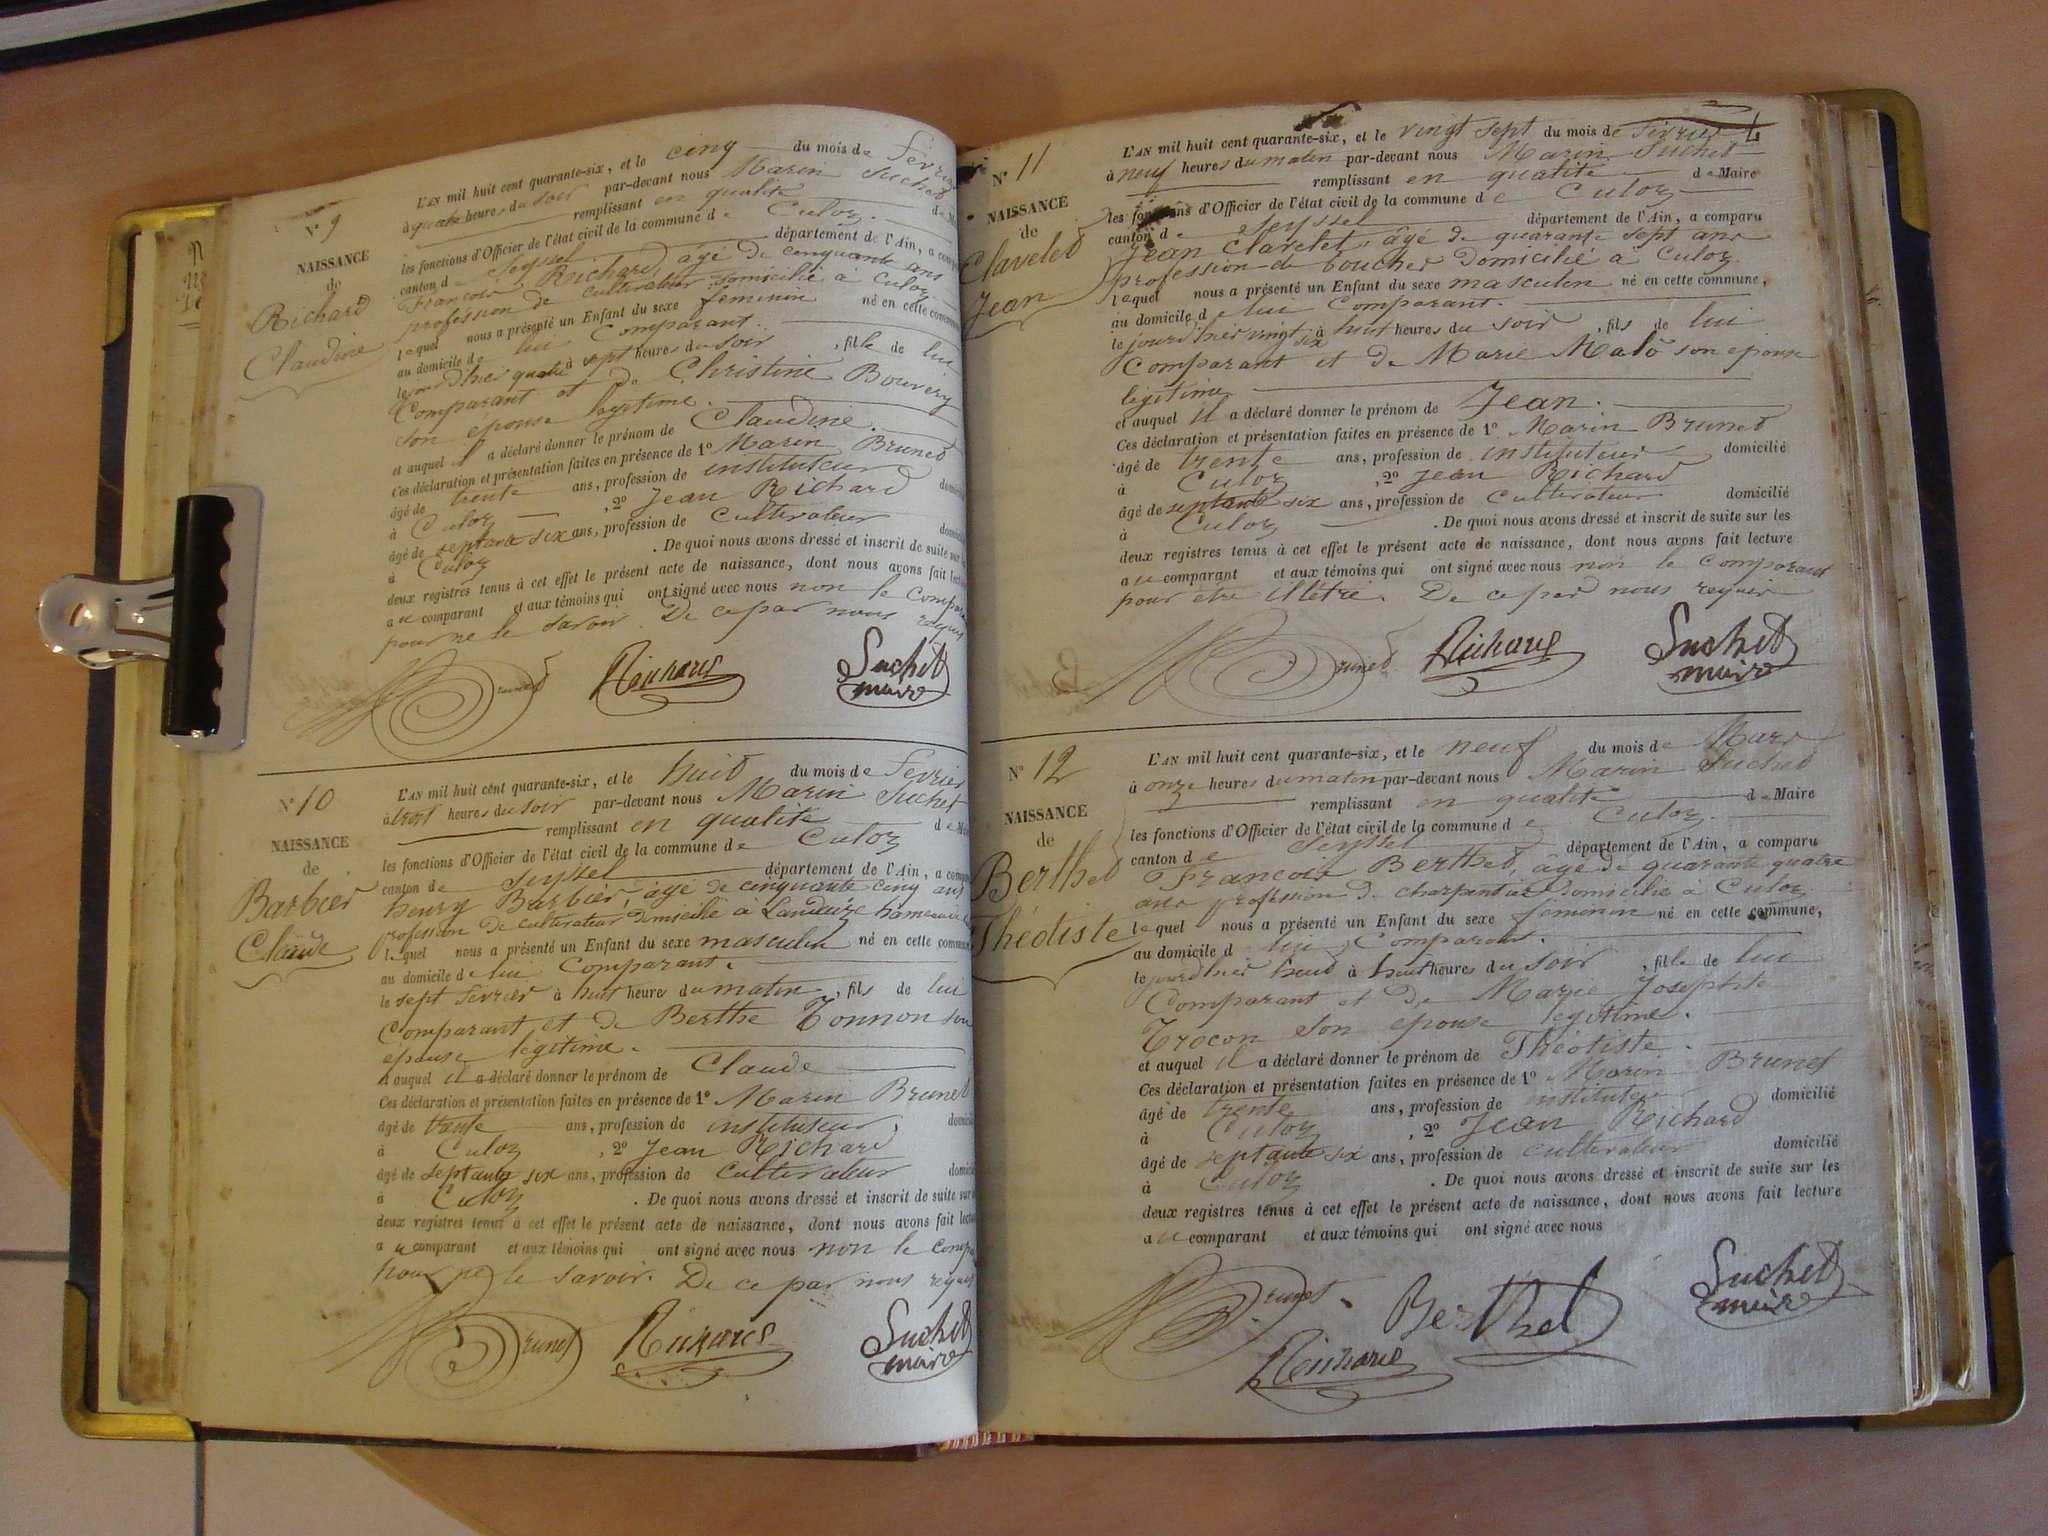 N° 9
NAISSANCE
de
Richard
Claudine
L'AN mil huit cent quarante-six, et le cinq du mois de Fevrier
à quatre heures du soir par-devant nous Marin Suchet
remplissant en qualité de
les fonctions d'Officier de l'état civil de la commune de Culoz.
canton de Seyssel département de l'Ain, a comparu
Francois Richard, âgé de cinquante ans
profession de cultivateur domicilié à Culoz
lequel nous a présenté un Enfant du sexe feminin né en cette commune
au domicile de lui Comparant.
le jourdhier quatre à sept heures du soir, fille de lui
Comparant et de Christine Bouvery
son epouse legitime.
et auquel il a déclaré donner le prénom de Claudine.
Ces déclaration et présentation faites en présence de 1° Marin Brunet
âgé de trente ans, profession de instituteur
à Culoz, 2° Jean Richard
âgé de septante six ans, profession de Cultivateur
à Culoz. De quoi nous avons dressé et inscrit de suite sur
deux registres tenus à cet effet le présent acte de naissance, dont nous avons fait lecture
au comparant et aux témoins qui ont signé avec nous non le comparant
pour ne le savoir. De ce par nous requis
Brunet Richard Suchet
maire
N° 10
NAISSANCE
de
Barbier
Claude
L'AN mil huit cent quarante-six, et le huit du mois de Fevrier
à trois heures du soir par-devant nous Marin Suchet
remplissant en qualité de
les fonctions d'Officier de l'état civil de la commune de Culoz
canton de Seyssel département de l'Ain, a comparu
henry Barbier, âgé de cinquante cinq ans
profession de cultivateur domicilié à Landaize hameau
lequel nous a présenté un Enfant du sexe masculin né en cette commune
au domicile de lui Comparant.
le sept fevrier à huit heures du matin, fils de lui
Comparant, et de Berthe Tonnon son
épouse légitime.
et auquel il a déclaré donner le prénom de Claude
Ces déclaration et présentation faites en présence de 1° Marin Brunet
âgé de trente ans, profession de instituteur,
à Culoz, 2° Jean Richard
âgé de septante six ans, profession de Cultivateur
à Culoz. De quoi nous avons dressé et inscrit de suite sur
deux registres tenus à cet effet le présent acte de naissance, dont nous avons fait lecture
au comparant et aux témoins qui ont signé avec nous non le
pour ne le savoir. De ce par nous requis
Brunet Richard Suchet
maire
N° 11
NAISSANCE
de
Clavelet
Jean
L'AN mil huit cent quarante-six, et le vingt sept du mois de Fevrier
à neuf heures du matin par-devant nous Marin Suchet
remplissant en qualité de Maire
les fonctions d'Officier de l'état civil de la commune de Culoz
canton de Seyssel département de l'Ain, a comparu
Jean Clavelet, âgé de quarante sept ans
profession de boucher domicilié à Culoz.
lequel nous a présenté un Enfant du sexe masculin né en cette commune,
au domicile de lui Comparant.
le jourdhier vingt six à huit heures du soir, fils de lui
Comparant et de Marie Malo son epouse
légitime
et auquel il a déclaré donner le prénom de Jean.
Ces déclaration et présentation faites en présence de 1° Marin Brunet
âgé de trente ans, profession de instituteur domicilié
à Culoz, 2° Jean Richard
âgé de septante six ans, profession de Cultivateur domicilié
à Culoz. De quoi nous avons dressé et inscrit de suite sur les
deux registres tenus à cet effet le présent acte de naissance, dont nous avons fait lecture
au comparant et aux témoins qui ont signé avec nous non le comparant
pour etre illétré. De ce par nous requis
Brunet Richard Suchet
maire
N° 12
NAISSANCE
de
Berthet
Théotiste
L'AN mil huit cent quarante-six, et le neuf du mois de Mars
à onze heures du matin par-devant nous Marin Suchet
remplissant en qualité de Maire
les fonctions d'Officier de l'état civil de la commune de Culoz.
canton de Seyssel département de l'Ain, a comparu
Francois Berthet, âgé de quarante quatre
ans profession de charpentier domicilié à Culoz
lequel nous a présenté un Enfant du sexe féminin né en cette commune,
au domicile de lui Comparant.
le jourdhier huit à huit heures du soir, fille de lui
Comparant et de Marie Josephte
Trocon son epouse legitime.
et auquel il a déclaré donner le prénom de Théotiste.
Ces déclaration et présentation faites en présence de 1° Marin Brunet
âgé de trente ans, profession de instituteur domicilié
à Culoz, 2° Jean Richard
âgé de septante six ans, profession de cultivateur domicilié
à Culoz. De quoi nous avons dressé et inscrit de suite sur les
deux registres tenus à cet effet le présent acte de naissance, dont nous avons fait lecture
au comparant et aux témoins qui ont signé avec nous
Brunet Berthet Suchet
maire
Richard